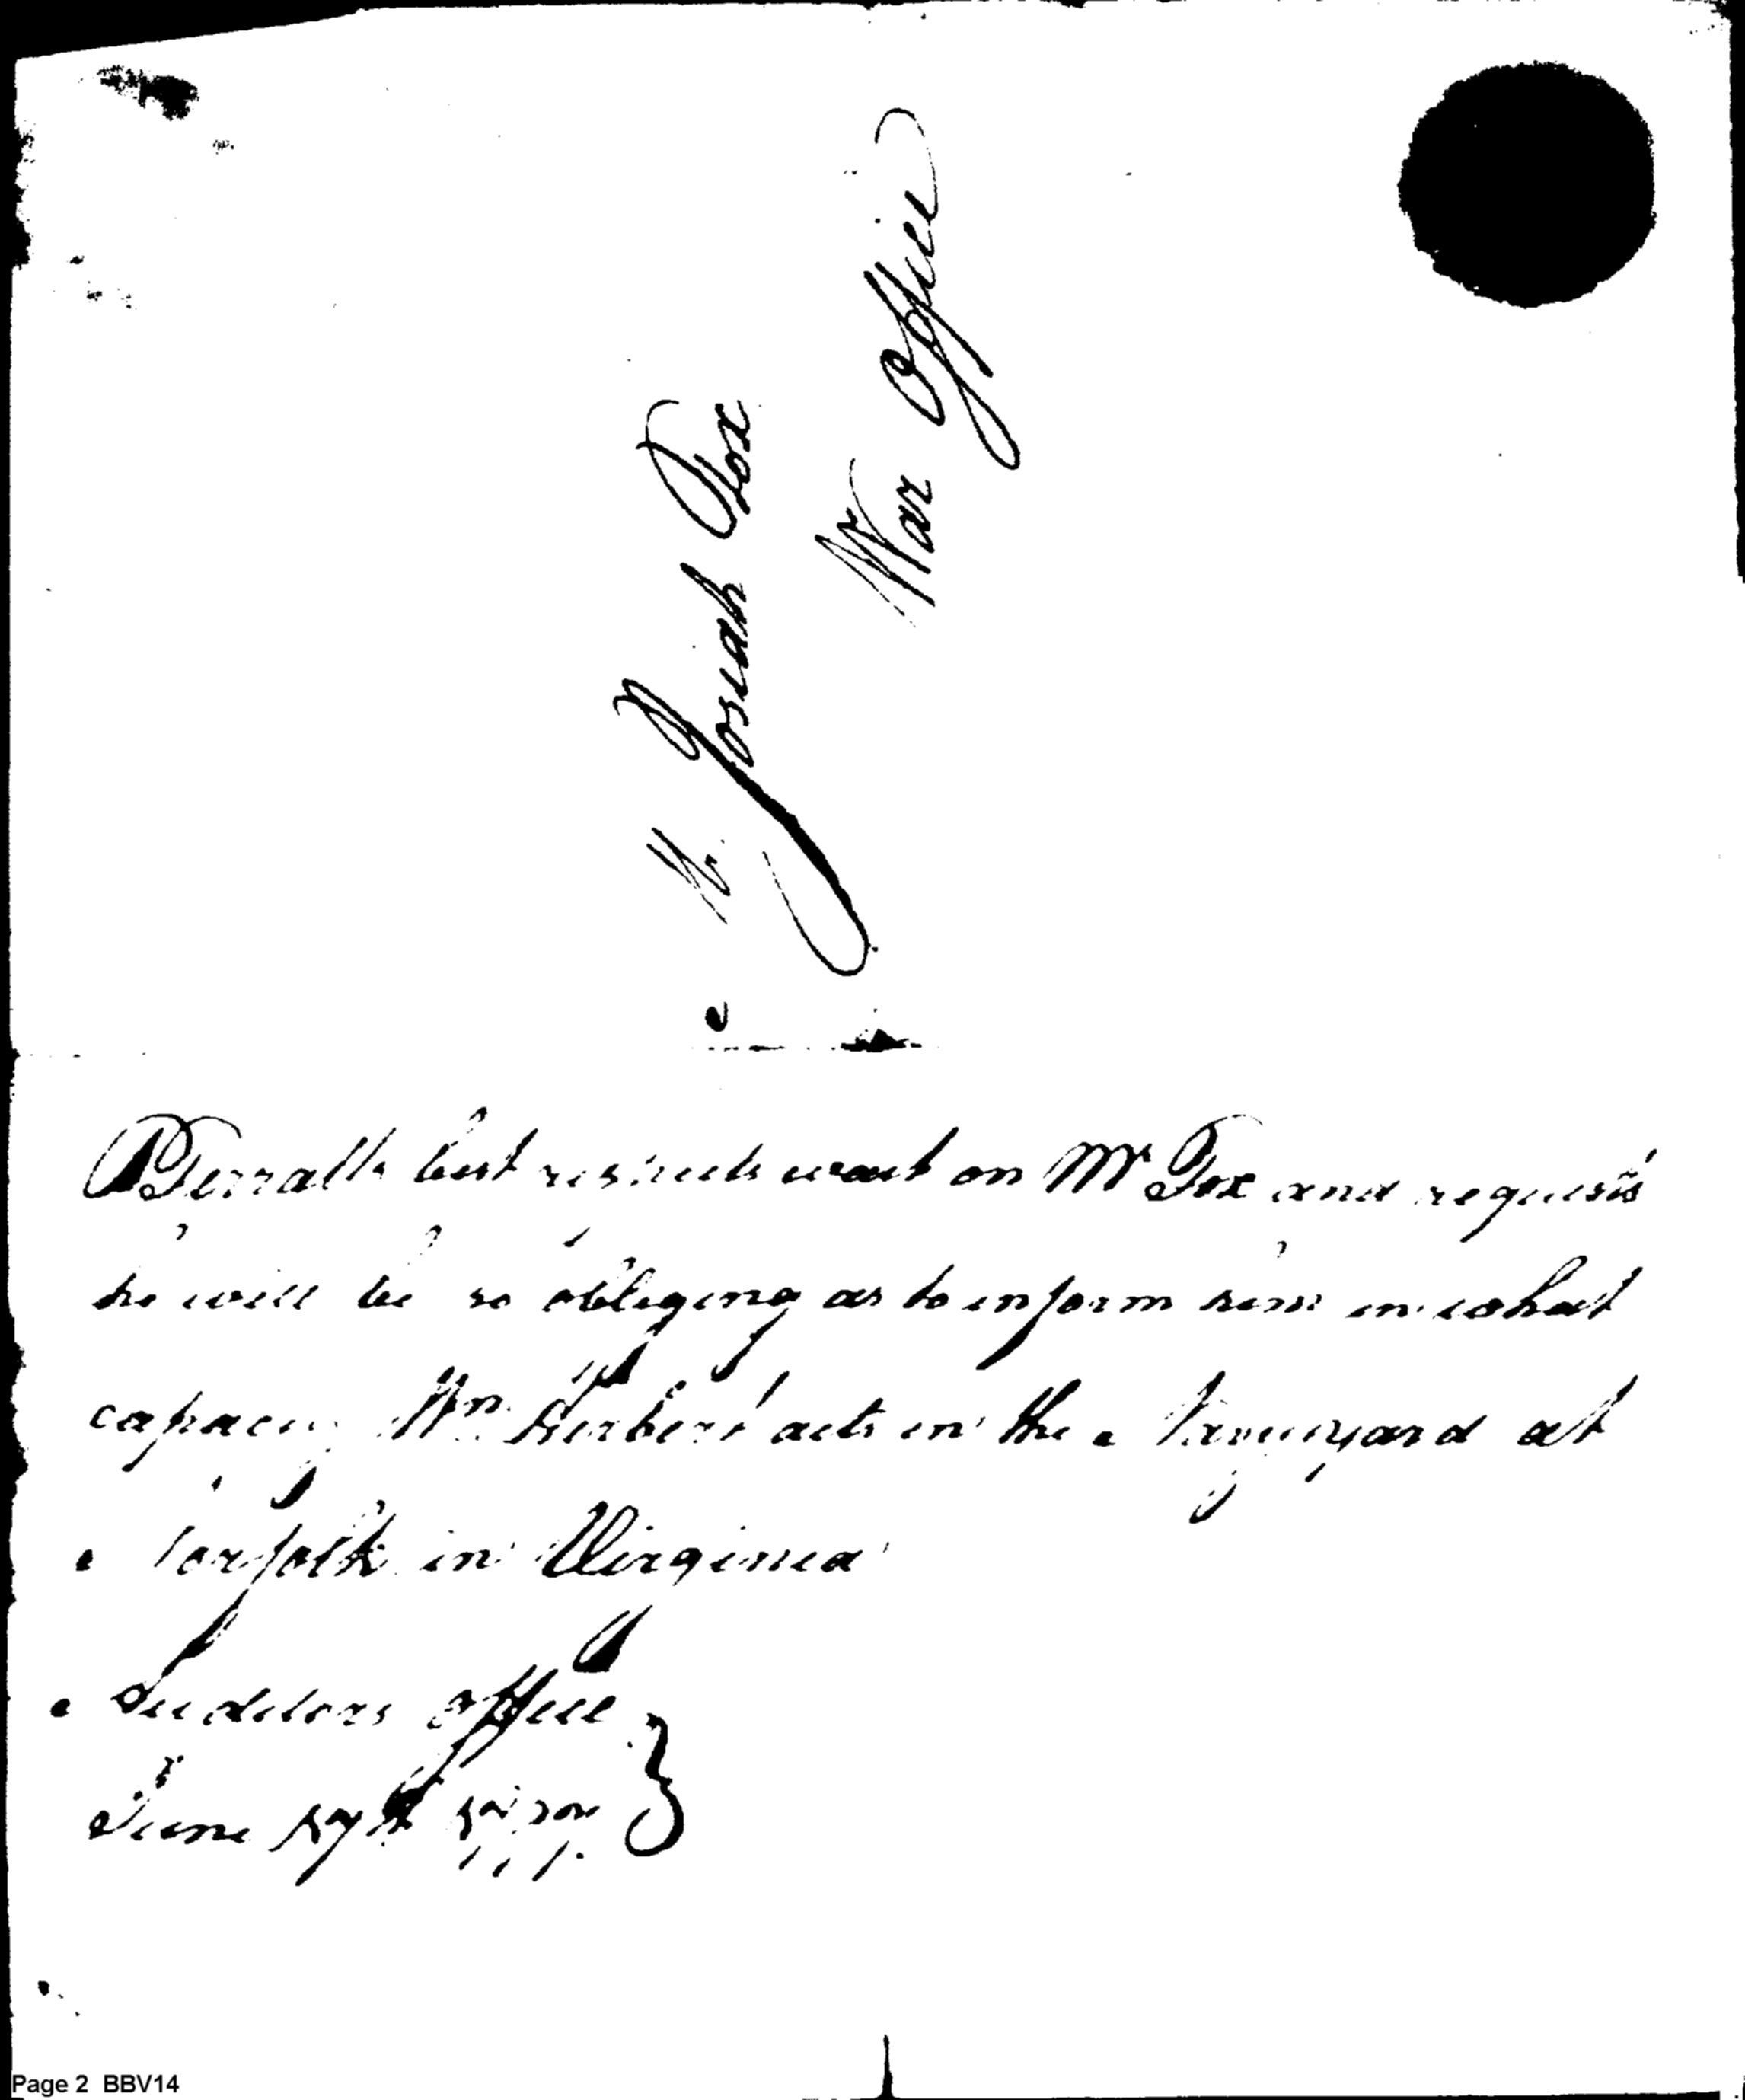 Mr. Josiah Fox
War Office
best respects wait on Mr Fox and requests
he will be so obliging as to inform him in what
capacity Wm. Herbert acts in the Navy yard at
Norfolk in Virginia
Auditors office
June
Page 2 BBV14